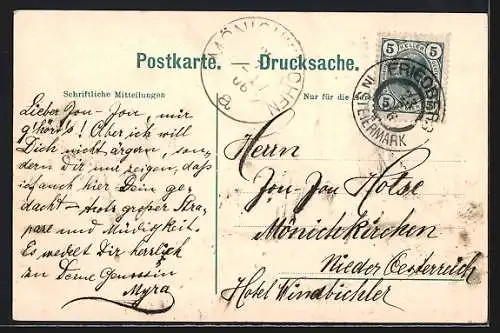 Postkarte. — Drucksache.
MÖNICHKIRCHEN
a
5 HELLER 5
FRIEDBERG
STEIERMARK
Schriftliche Mitteilungen
Nur für die
Lieber Jou-Jou, mir
g'hörts! Aber ich will
Dich nicht ärgern, son-
dern Dir nur zeigen, daß
ich auch hier Dein ge-
dacht – trotz großer Stra-
paze und Müdigkeit.
Es wedelt Dir herzlich
zu Deine Genossin
Myra
Herrn
Jou-Jou Holse
Mönichkirchen
Nieder Oesterreich
Hotel Windbichler